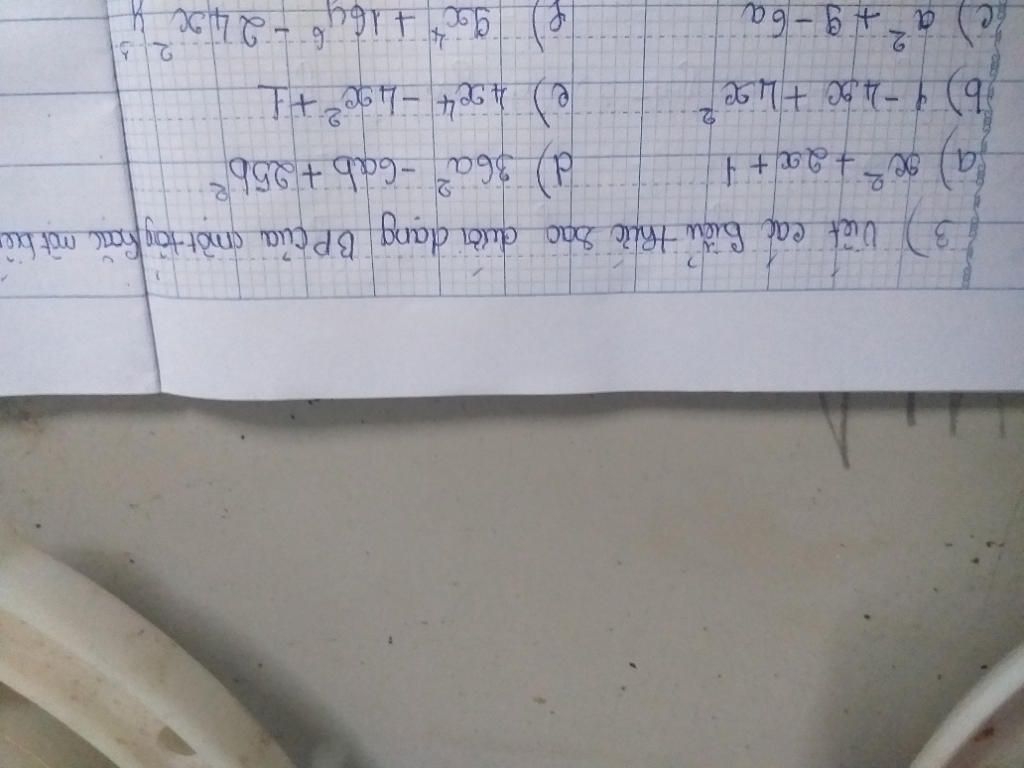 3) Viết các biểu thức sao dưới dạng BP của một tổng hoặc một
a) x² + 2x + 1 d) 36a² - 6ab + 25b²
b) 1 - 4x + 4x² e) 4x⁴ - 4x² + 1
c) a² + 9 - 6a f) 9x⁴ + 16y⁶ - 24x² y³